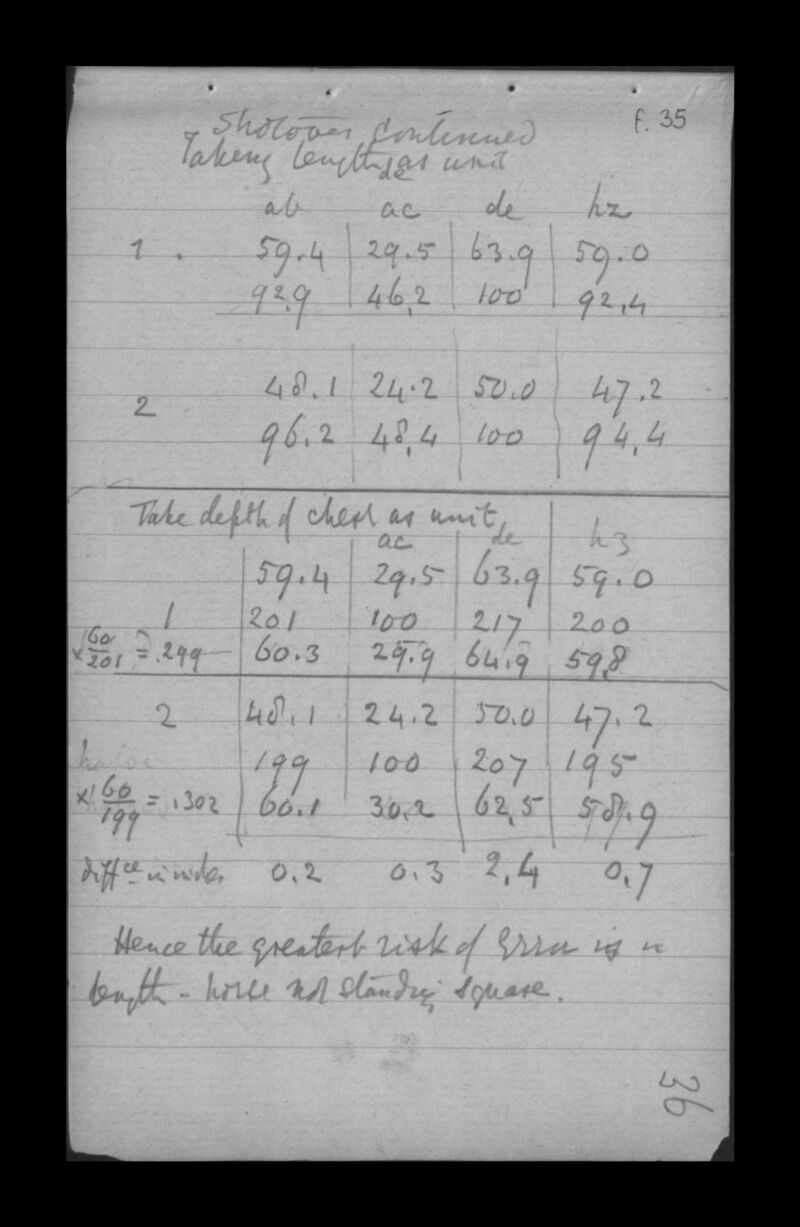 f. 35
Shotover continued
Taking length as unit
de
ab ac de hz
1 . 59.4 29.5 63.9 59.0
92.9 46.2 100 92.4
2 48.1 24.2 50.0 47.2
96.2 48.4 100 94.4
Take depth of chest as unit
ac de hz
59.4 29.5 63.9 59.0
1 201 100 217 200
× 60/201 = .299 60.3 29.9 64.9 59.8
2 48.1 24.2 50.0 47.2
199 100 207 195
× 60/199 = .302 60.1 30.2 62.5 58.9
diffce in 0.2 0.3 2.4 0.7
Hence the greatest risk of Error is in
length - horse not standing square.
36